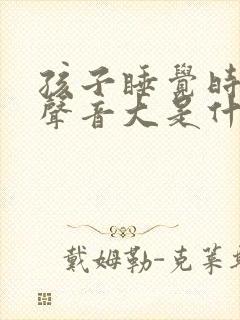 孩子睡覺時
聲音大是什
戴姆勒-克萊